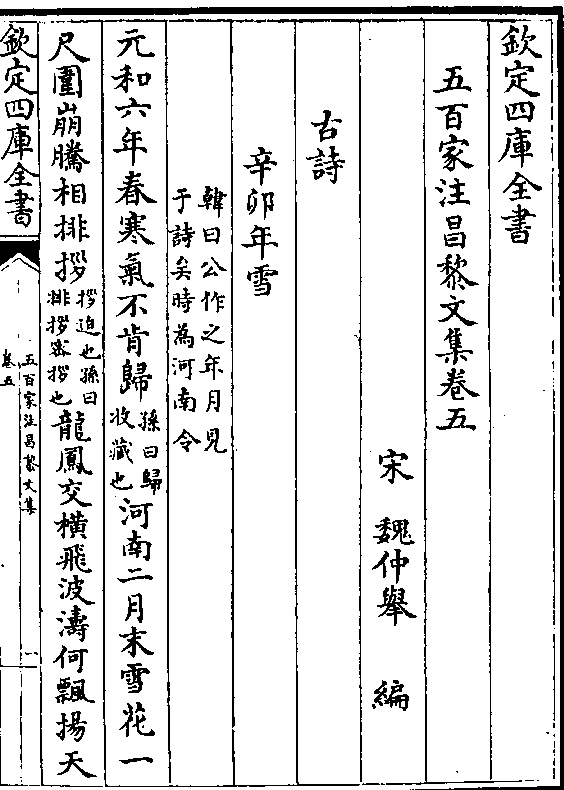 欽定四庫全書
五百家注昌黎文集卷五
宋 魏仲舉 編
古詩
辛卯年雪
韓曰公作之年月見
于詩矣時為河南令
元和六年春寒氣不肯歸孫曰歸收藏也河南二月末雪花一
尺圍崩騰相排拶拶迫也孫曰排拶密拶也龍鳳交橫飛波濤何飄揚天
欽定四庫全書
五百家注昌黎文集
卷五
一